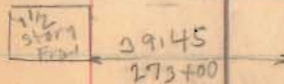 1 1/2
Story
Fra
39.45
273+00